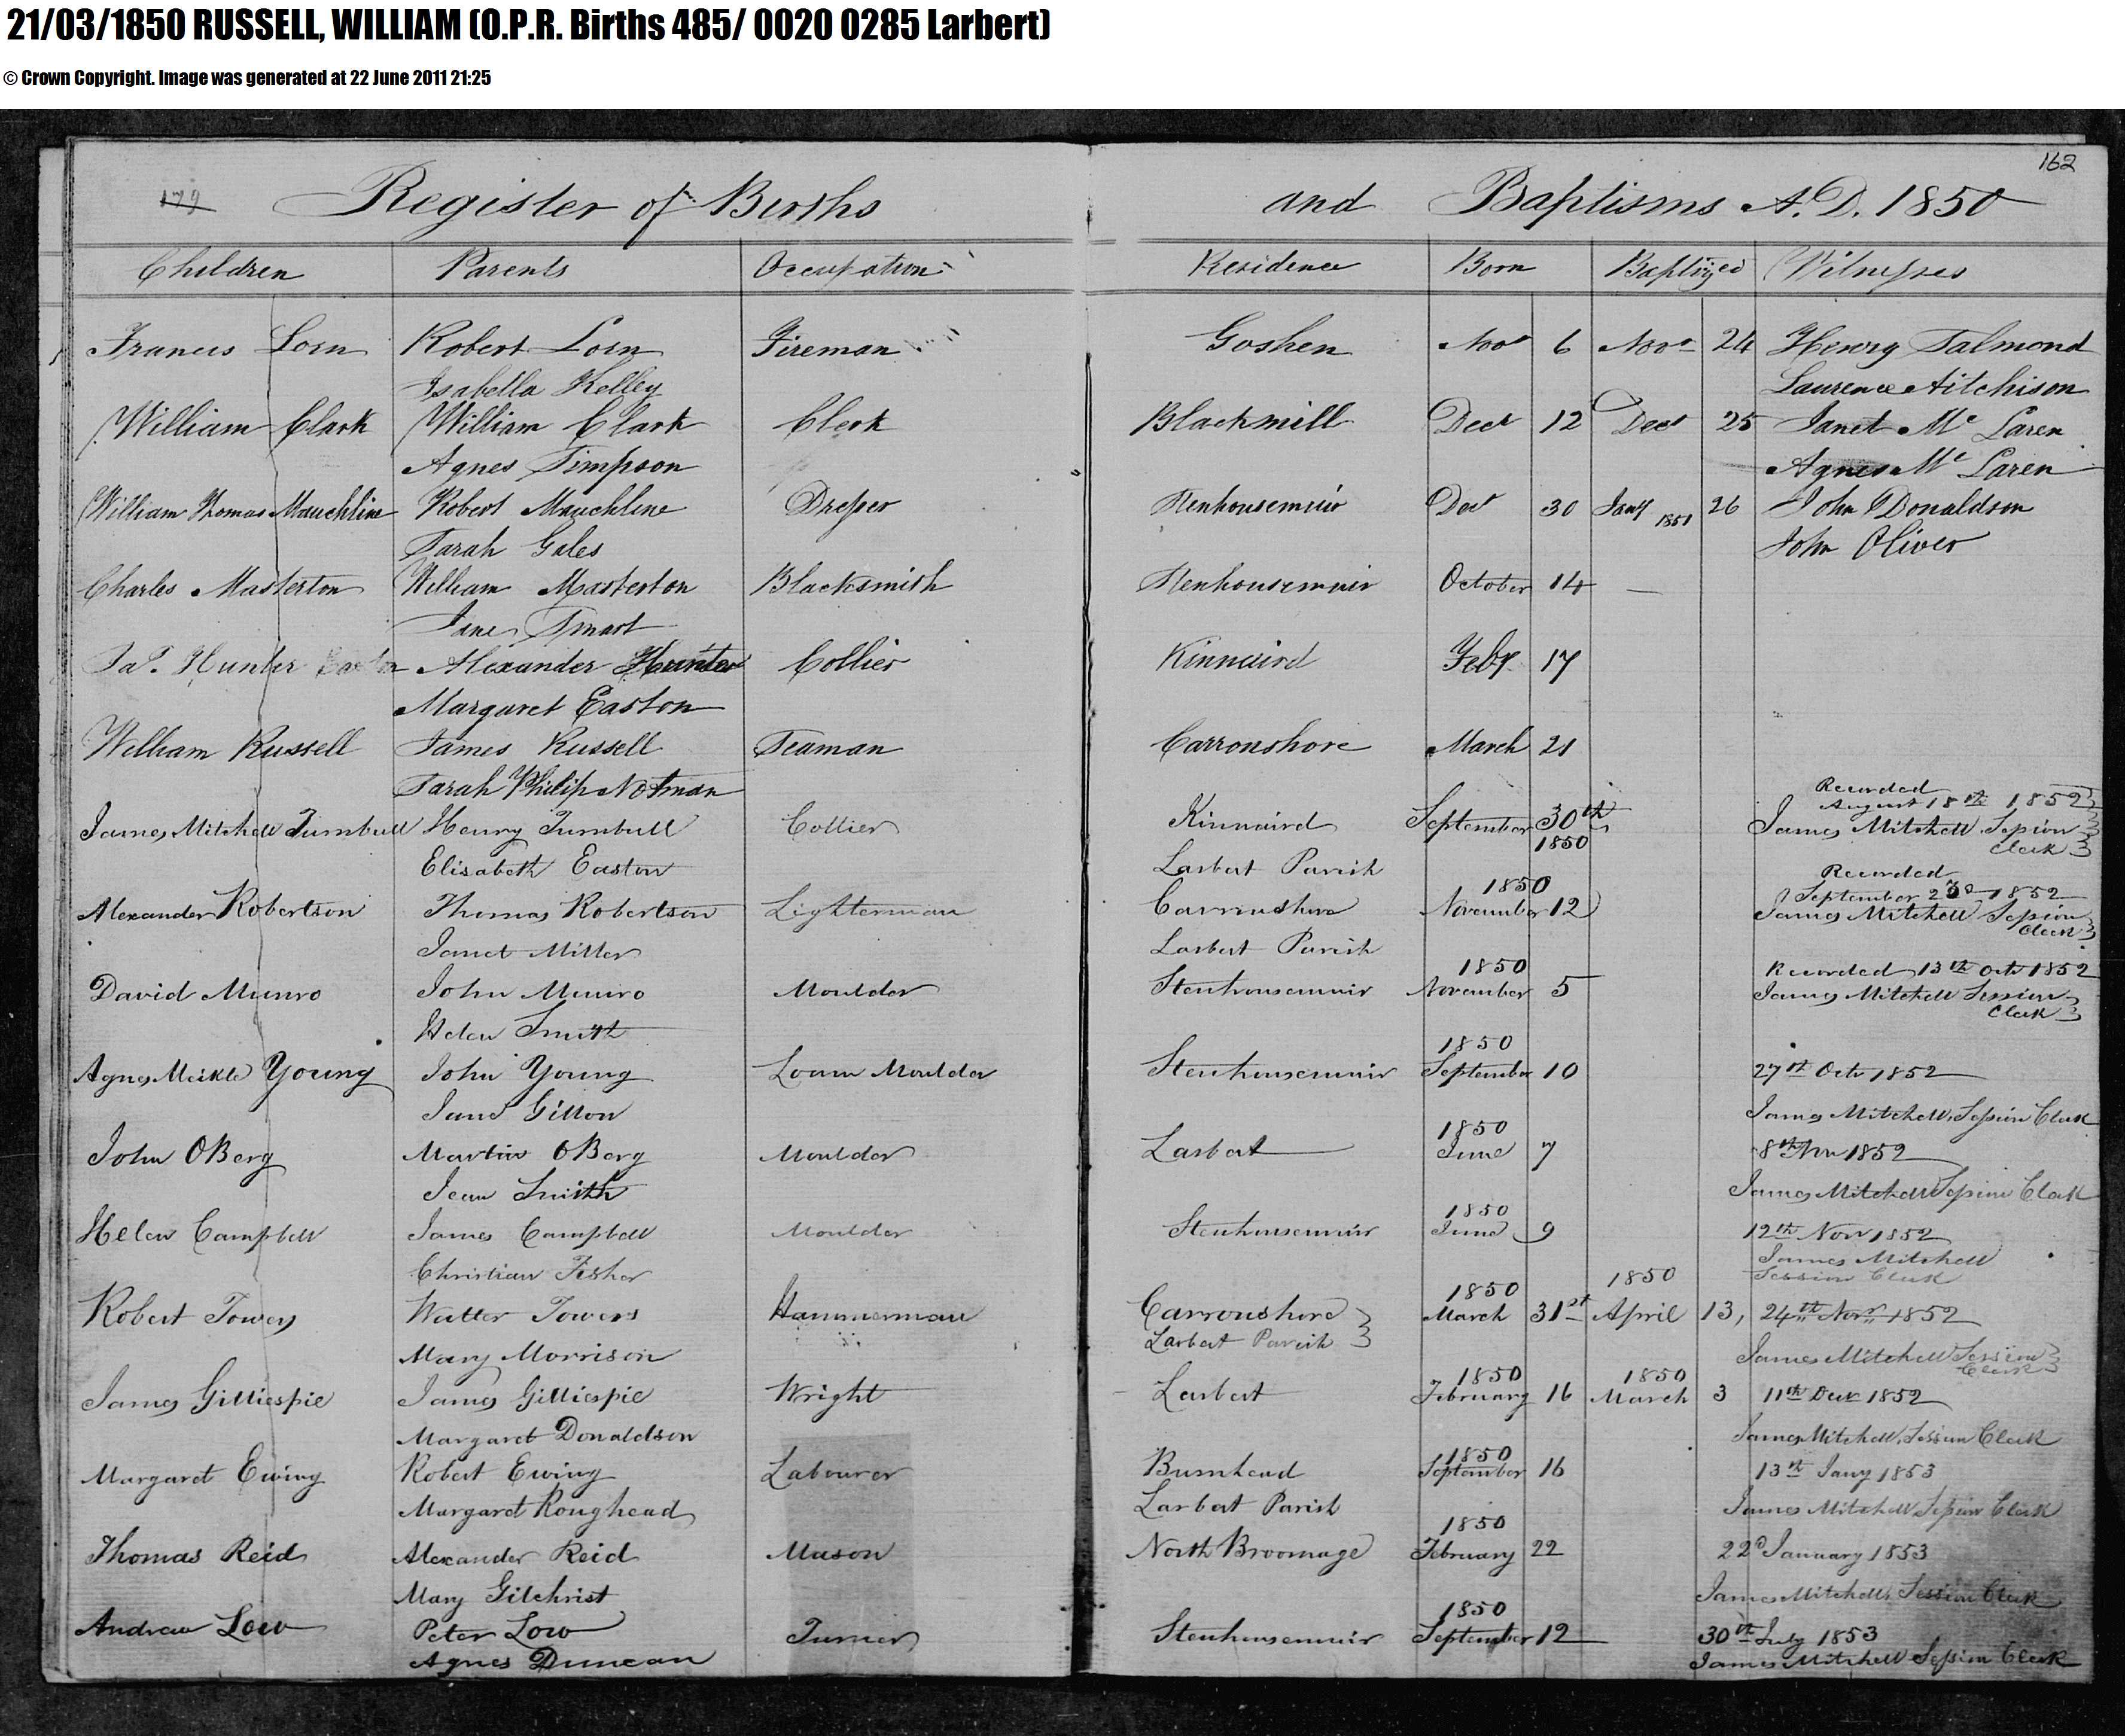 21/03/1850 RUSSELL, WILLIAM (O.P.R. Births 485/ 0020 0285 Larbert)
© Crown Copyright. Image was generated at 22 June 2011 21:25
162
179 Register of Births and Baptisms A.D. 1850
Children Parents Occupation Residence Born Baptized Witnesses
Francis Lorn Robert Lorn Fireman Goshen Novr 6 Novr 24 Henry Salmond
Isabella Kelley Laurence Aitchison
William Clark William Clark Clerk Blackmill Decr 12 Decr 25 Janet Mc Laren
Agnes Simpson Agnes Mc Laren
William Thomas Mauchline Robert Mauchline Dresser Stenhousemuir Decr 30 Jany 1851 26 John Donaldson
Sarah Gales John Oliver
Charles Masterton William Masterton Blacksmith Stenhousemuir October 14 —
Jane Smart
Jas. Hunter Easton Alexander Hunter Collier Kinnaird Feby. 17
Margaret Easton
William Russell James Russell Seaman Carronshore March 21
Sarah Philip Notman
Recorded
August 18th 1852
James Mitchell Turnbull Henry Turnbull Collier Kinnaird September 30th James Mitchell Session
1850 Clerk
Elisabeth Easton Larbert Parish
Recorded
1850 September 23d 1852
Alexander Robertson Thomas Robertson Lighterman Carronshore November 12 James Mitchell Session
Clerk
Janet Miller Larbert Parish
1850 Recorded 13th Octr 1852
David Munro John Munro Moulder Stenhousemuir November 5 James Mitchell Session
Clerk
Helen Smith
1850
Agnes Meikle Young John Young Loam Moulder Stenhousemuir September 10 27th Octr 1852
Jane Gillon James Mitchell, Session Clerk
1850
John OBerg Martin OBerg Moulder Larbert June 7 8th Nov 1852
Jean Smith James Mitchell Session Clerk
1850
Helen Campbell James Campbell Moulder Stenhousemuir June 9 12th Nov 1852
James Mitchell
Christian Fisher Session Clerk
1850 1850
Robert Towers Walter Towers Hammerman Carronshore March 31st April 13, 24th Novr 1852
Larbert Parish
Mary Morrison James Mitchell Session
Clerk
1850 1850
James Gilliespie James Gilliespie Wright Larbert February 16 March 3 11th Decr 1852
Margaret Donaldson James Mitchell, Session Clerk
1850
Margaret Ewing Robert Ewing Labourer Burnhead September 16 13th Jany 1853
Margaret Roughead Larbert Parish James Mitchell Session Clerk
1850
Thomas Reid Alexander Reid Mason North Broomage February 22 22d January 1853
Mary Gilchrist James Mitchell, Session Clerk
1850
Andrew Low Peter Low Turner Stenhousemuir September 12 30th July 1853
Agnes Duncan James Mitchell Session Clerk